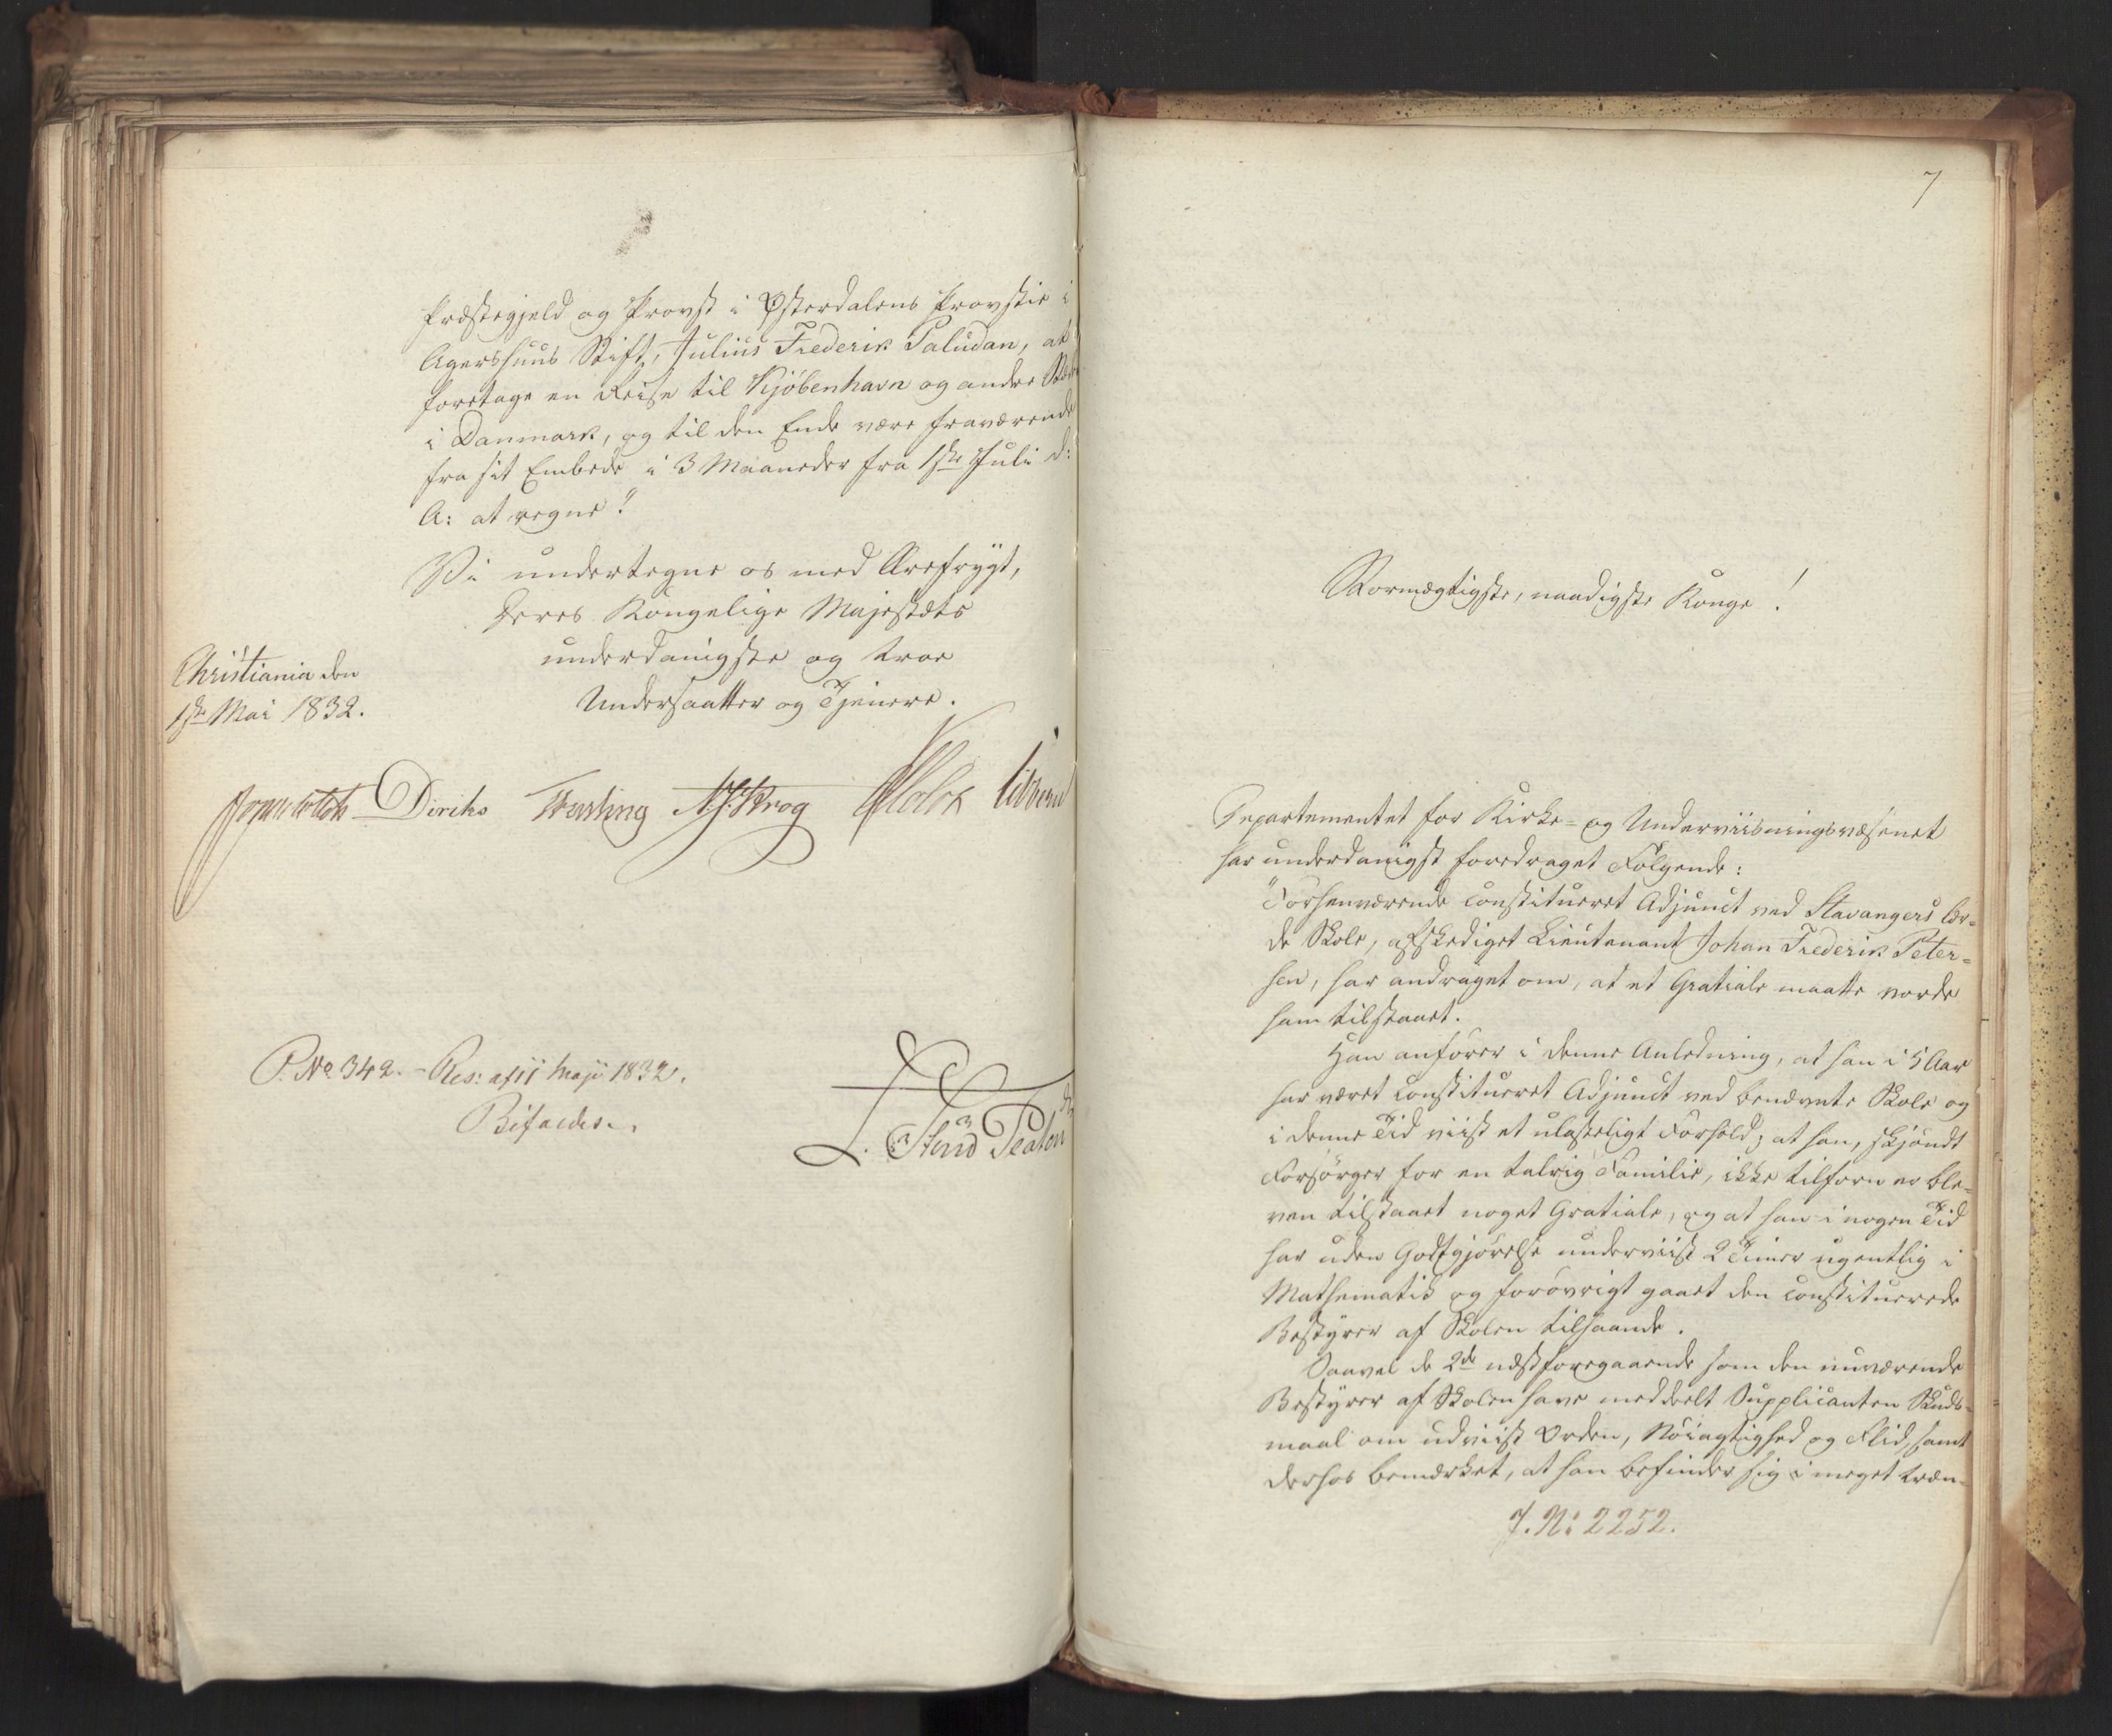 Præstegjeld og Provst i Østerdalens Provstie i
Agershuus Stift, Julius Frederik Paludan, at
foretage en Reise til Kjøbenhavn og andre Stæder
i Danmark, og til den Ende være fraværende
fra sit Embede i 3 Maaneder fra 1ste Juli d:
A: at regne."
Vi undertegne os med Ærefrygt,
Deres Kongelige Majestæts
underdanigste og troe
Undersaatter og Tjenere.
Christiania den
1ste Mai 1832.
Diriks M. Krog Holst
P. No 342. - Res: af 11 Maji 1832.
Bifaldes.
7
Stormægtigste, naadigste Konge!
Departementet for Kirke- og Underviisningsvæsenet
har underdanigst foredraget Følgende:
"Forhenværende constitueret Adjunct ved Stavangers lær-
de Skole, afskediget Lieutenant Johan Frederik Peter-
sen, har andraget om, at et Gratiale maatte vorde
ham tilstaaet.
Han anfører i denne Anledning, at han i 5 Aar
har været constitueret Adjunct ved benævnte Skole og
i denne Tid viist et ulasteligt Forhold; at han, skjøndt
Forsørger for en talrig Familie, ikke tilforn er ble-
ven tilstaaet noget Gratiale, og at han i nogen Tid
har uden Godtgjørelse underviist 2 Timer ugentlig i
Mathematik og forøvrigt gaaet den constituerede
Bestyrer af Skolen tilhaande.
Saavel de 2de næstforegaaende som den nuværende
Bestyrer af Skolen have meddeelt Supplicanten Skuds-
maal om udviist Orden, Nøiagtighed og Flid, samt
derhos bemærket, at han befinder sig i meget træn-
J. No 2252.